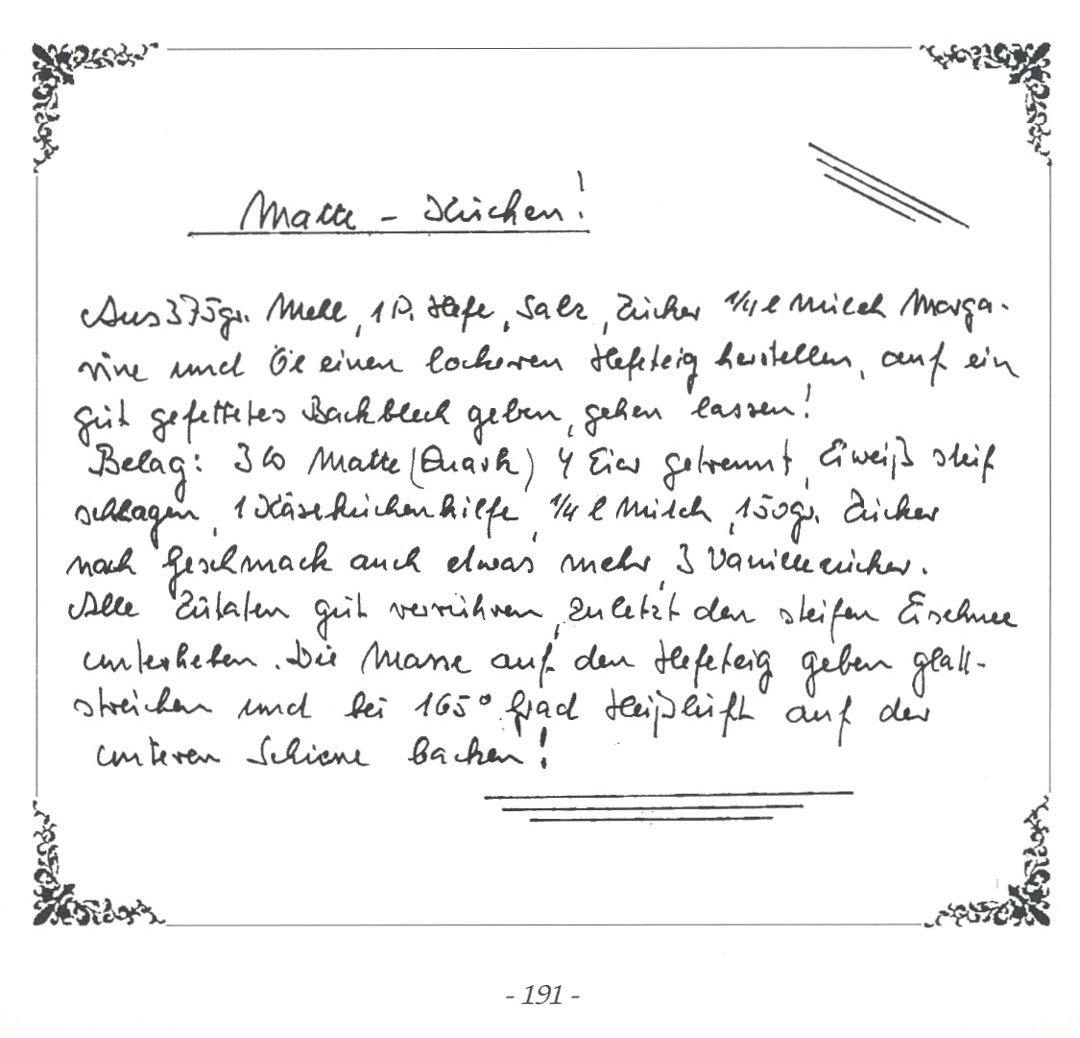 Matte - Kuchen!
Aus 375gr. Mehl, 1 P. Hefe, Salz, Zucker 1/4 l Milch Marga-
rine und Öl einen lockeren Hefeteig herstellen, auf ein
gut gefettetes Backblech geben, gehen lassen!
Belag: 3 Matte (Quark) 4 Eier getrennt, Eiweiß steif
schlagen, 1 Käsekuchenhilfe, 1/4 l Milch, 150gr. Zucker
nach Geschmack auch etwas mehr, 3 Vanillezucker.
Alle Zutaten gut verrühren, zuletzt den steifen Eischnee
unterheben. Die Masse auf den Hefeteig geben glatt-
streichen und bei 165° Grad Heißluft auf der
unteren Schiene backen!
- 191 -